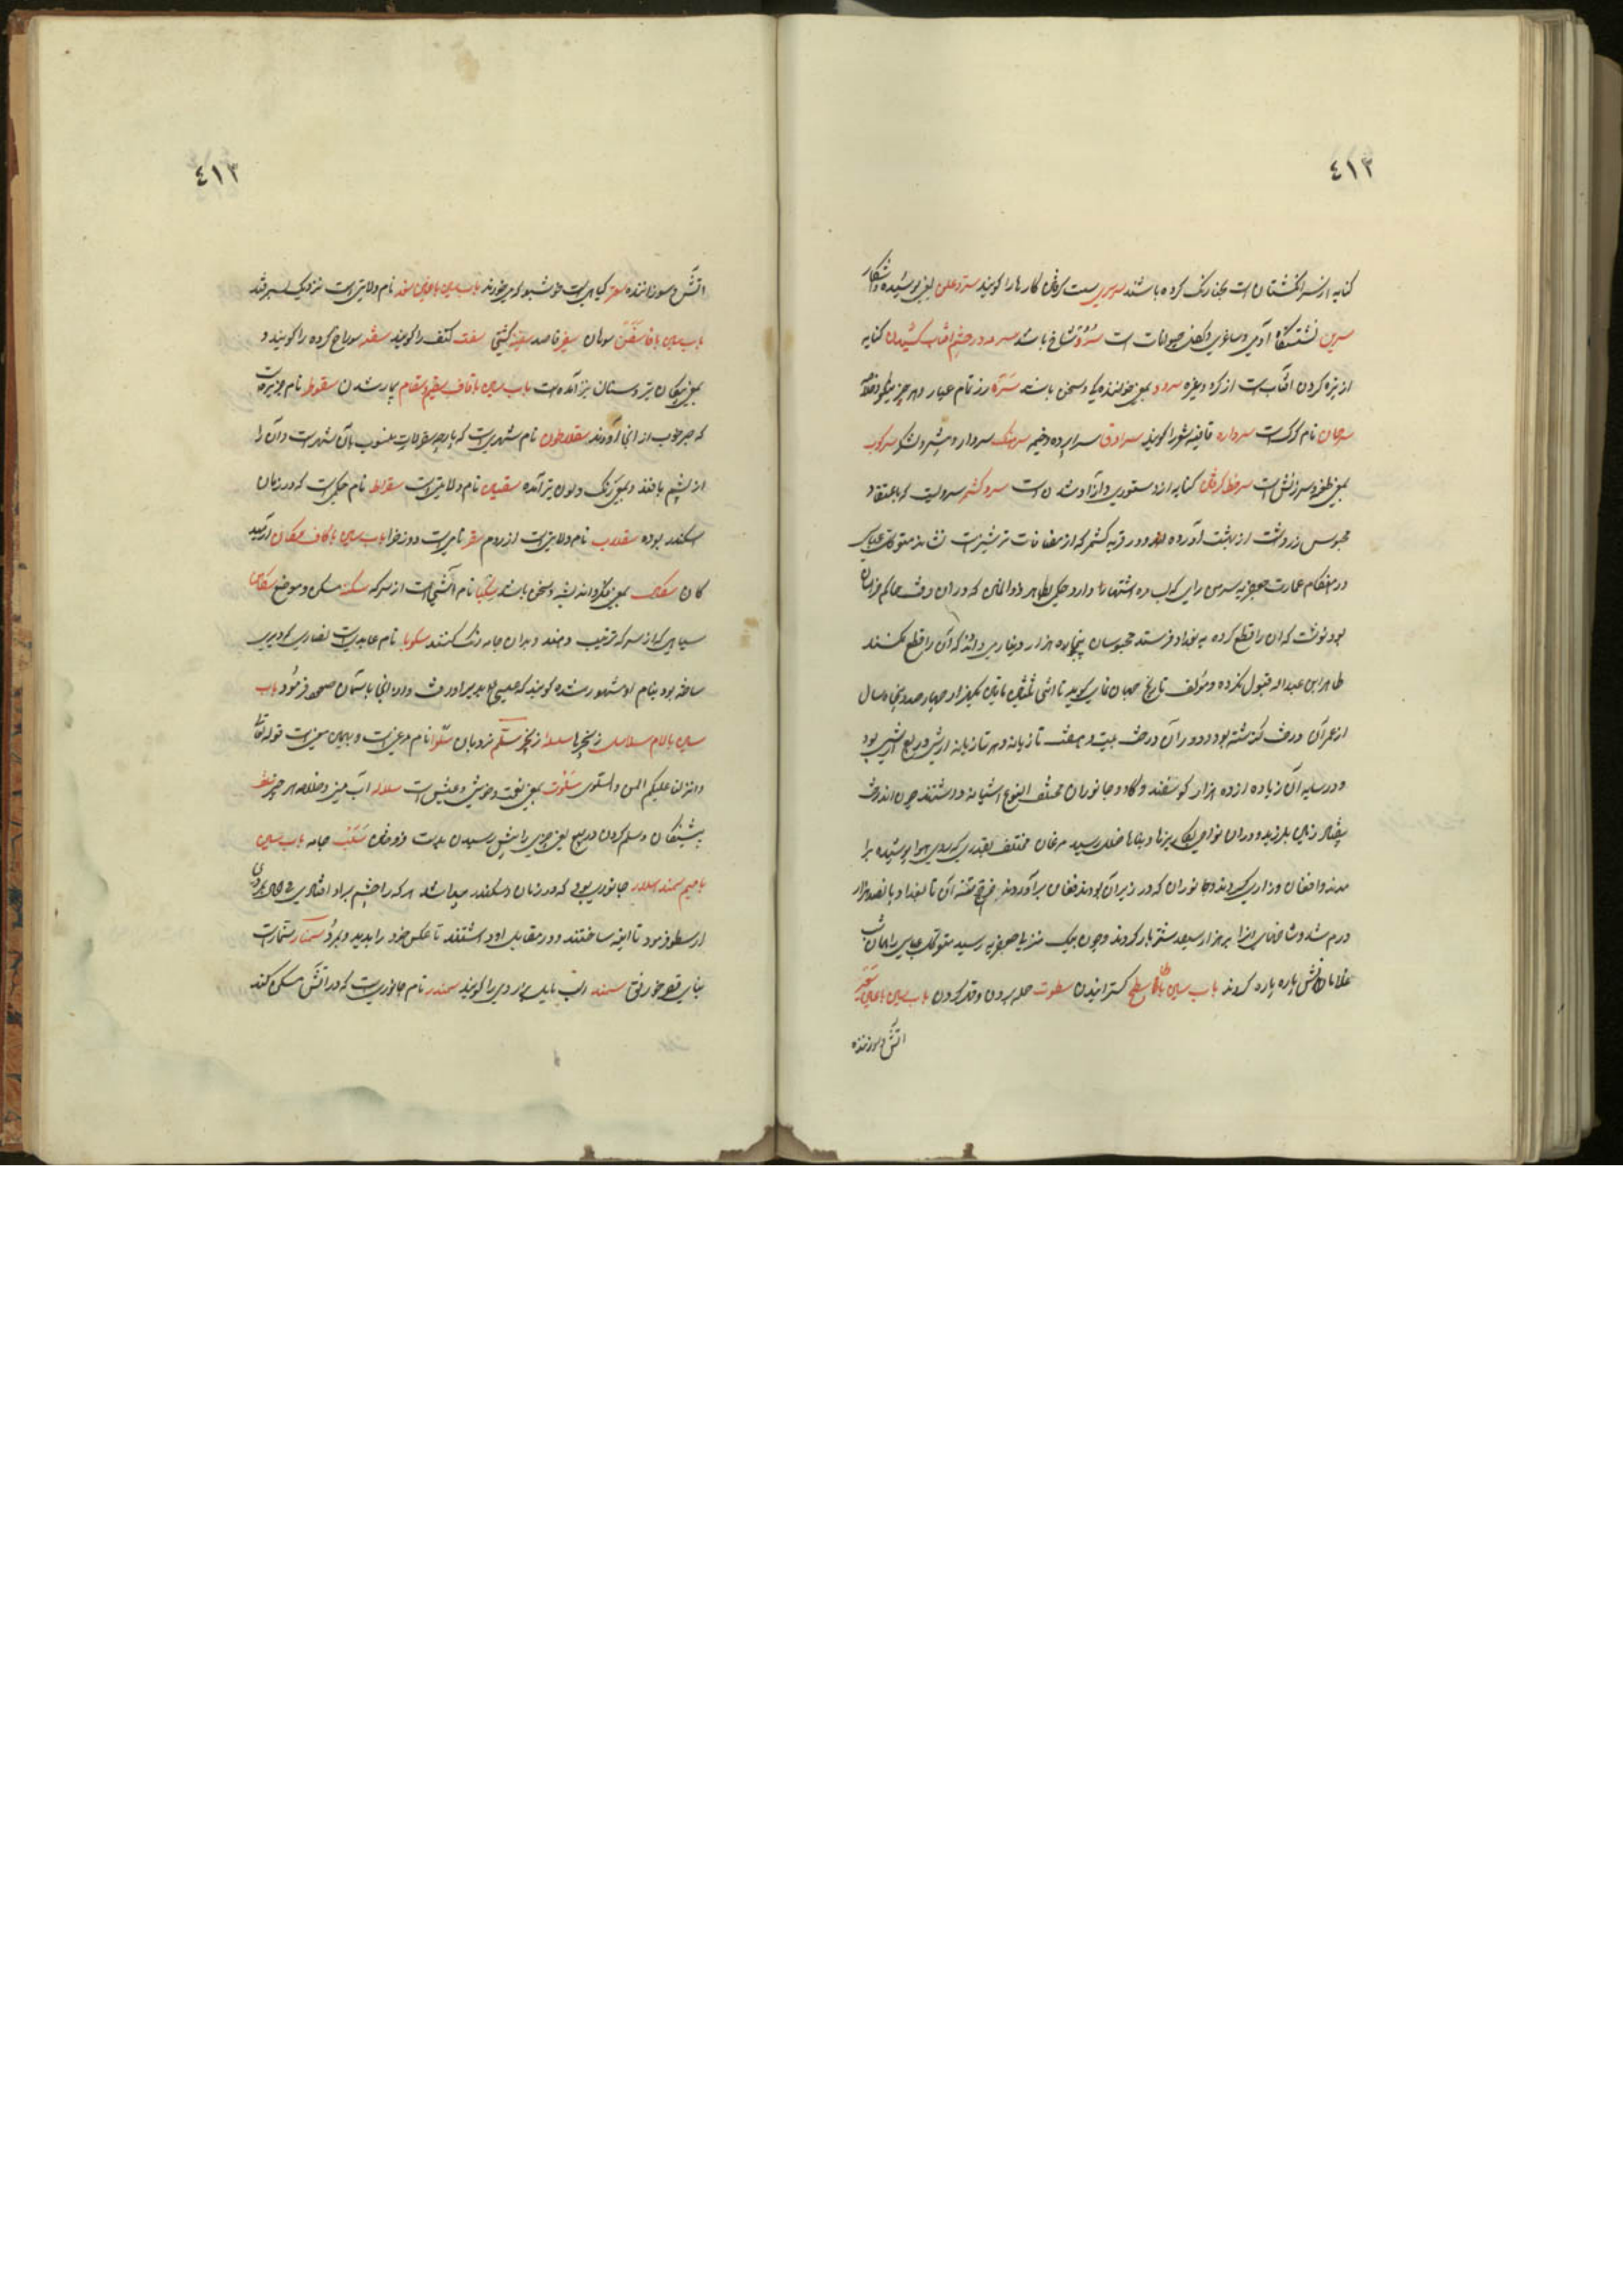 ٤١٣
کنایه از سر انگشتان است بحنا رنگ کرده باشند سرسری سست گرفتن کارها را گویند سر و علن یعنی پوشیده و آشکار
سرین نشستگاه آدمی و ساغری و کفل حیوانات است سرو شاخ باشد سرمه در چشم آفتاب کشیدن کنایه
از تیره کردن آفتاب است از گرد و غیره سرود بمعنی خوانندگی و سخن باشد سره زر تمام عیار و هر چیز نیکو و خلاصه
سرحان نام گرگ است سرواره قافیه شعر را گویند سرادق سراپرده و خیمه سرهنگ سردار و پیشرو لشکر سرکوب
بمعنی طعنه و سرزنش است سرخط گرفتن کنایه از دستوری و آزاد شدن است سرو کشمر سرویست که باعتقاد
مجوس زردشت از بهشت آورده بود و در قریه کشمر که از مضافات ترشیز است نشانده متوکل عباسی
در هنگام عمارت جعفریه سرمن رای که لب دجله اشتهار دارد حکمی بطاهر ذوالیمنین که در آن وقت حاکم خراسان
بود نوشت که آن را قطع کرده به بغداد فرستد مجوسان پنجاه هزار دینار می دادند که آن را قطع نکنند
طاهر ابن عبداله قبول نکرده و مؤلف تاریخ جهان نمای گوید تا اثنی ثلثین مأتین یکهزار و چهار صد و پنجاه سال
از عمر آن درخت گذشته بود و دور آن درخت بیست و هفت تازیانه و هر تازیانه ارشی و ربع ارشی بود
و در سایه آن زیاده از ده هزار گوسفند و گاو و جانوران مختلف النوع آشیانه داشتند چون آن درخت
بیفتاد زمین بلرزید و در آن نواحی بکاریزها و بناها خلل رسید مرغان مختلف بقدری که روی هوا پوشیده بر آ
مدند و افغان و زاری میکردند و جانوران که در زیر آن بودند فغان برآوردند خرج تنه آن تا بغداد پانصد هزار
درم شد و شاخهای آن را بر هزار سیصد شتر بار کردند و چون بیک منزلی جعفریه رسید متوکل عباسی را همان شب
غلامانش پاره پاره کردند باب سین با طا سطح گسترانیدن سطوت حمله بردن و قهر کردن باب سین با عین سعیر
آتش سوزنده
٤١٣
آتش سوزاننده سعتر گیاهی است خوشبو که می خورند باب سین با غین سغد نام ولایتی است نزدیک سمرقند
باب سین با فا سفن سوهان سفیر قاصد سفینه کشتی سفت کتف را گویند سفته سوراخ کرده را گویند و
بمعنی پیکان تیر و سنان نیز آمده است باب سین با قاف سقیم و سقام بیمار شدن سقوطر نام جزیره است
که صبر خوب از آنجا آورند سقلاطون نام شهریست که پارچه سقرلات منسوب بآن شهر است و آن را
از پشم بافند و بمعنی رنگ و لون نیز آمده سقسین نام ولایتی است سقراط نام حکیمی است که در زمان
اسکندر بوده سقلاب نام ولایتی است از روم سقر نامیست دوزخ را باب سین با کاف سکان
سکبا نام آشی است از سرکه سکنه مسکن و موضع سکاهن
سیاهی که از سرکه ترتیب دهند و بدان جامه رنگ کنند سکوبا نام عابدیست نصاری که دیری
ساخته بود بنام او مشهور شده گویند که عیسی ع بدیر او رفت و از آنجا باسمان صعود فرمود باب
سین با لام سلاسل زنجیرها سلسله زنجیر سلم نردبان سلوا نام مرغی است و بهمین معنی است قوله تعا
و انزلنا علیکم المن و السلوی سلوت بمعنی نعمت و خوشی و عیش است سلاله آب منی و خلاصه هر چیز سلف
پیشینگان و سلم کردن در بیع یعنی چیزی را پیش رسیدن بدست فروختن سلب جامه باب سین
با میم سمندر سلار جانوری بودی که در زمان اسکندر پیدا شد هر که را چشم بر او افتادی فی الحال مردی
ارسطو فرمود تا آینه ساختند و در مقابل او داشتند تا عکس خود را بدید و بمرد سمنار معمار است
بنای قصر خورنق سمند اسب مایل بزردی را گویند سمندر نام جانوریست که در آتش مسکن کند